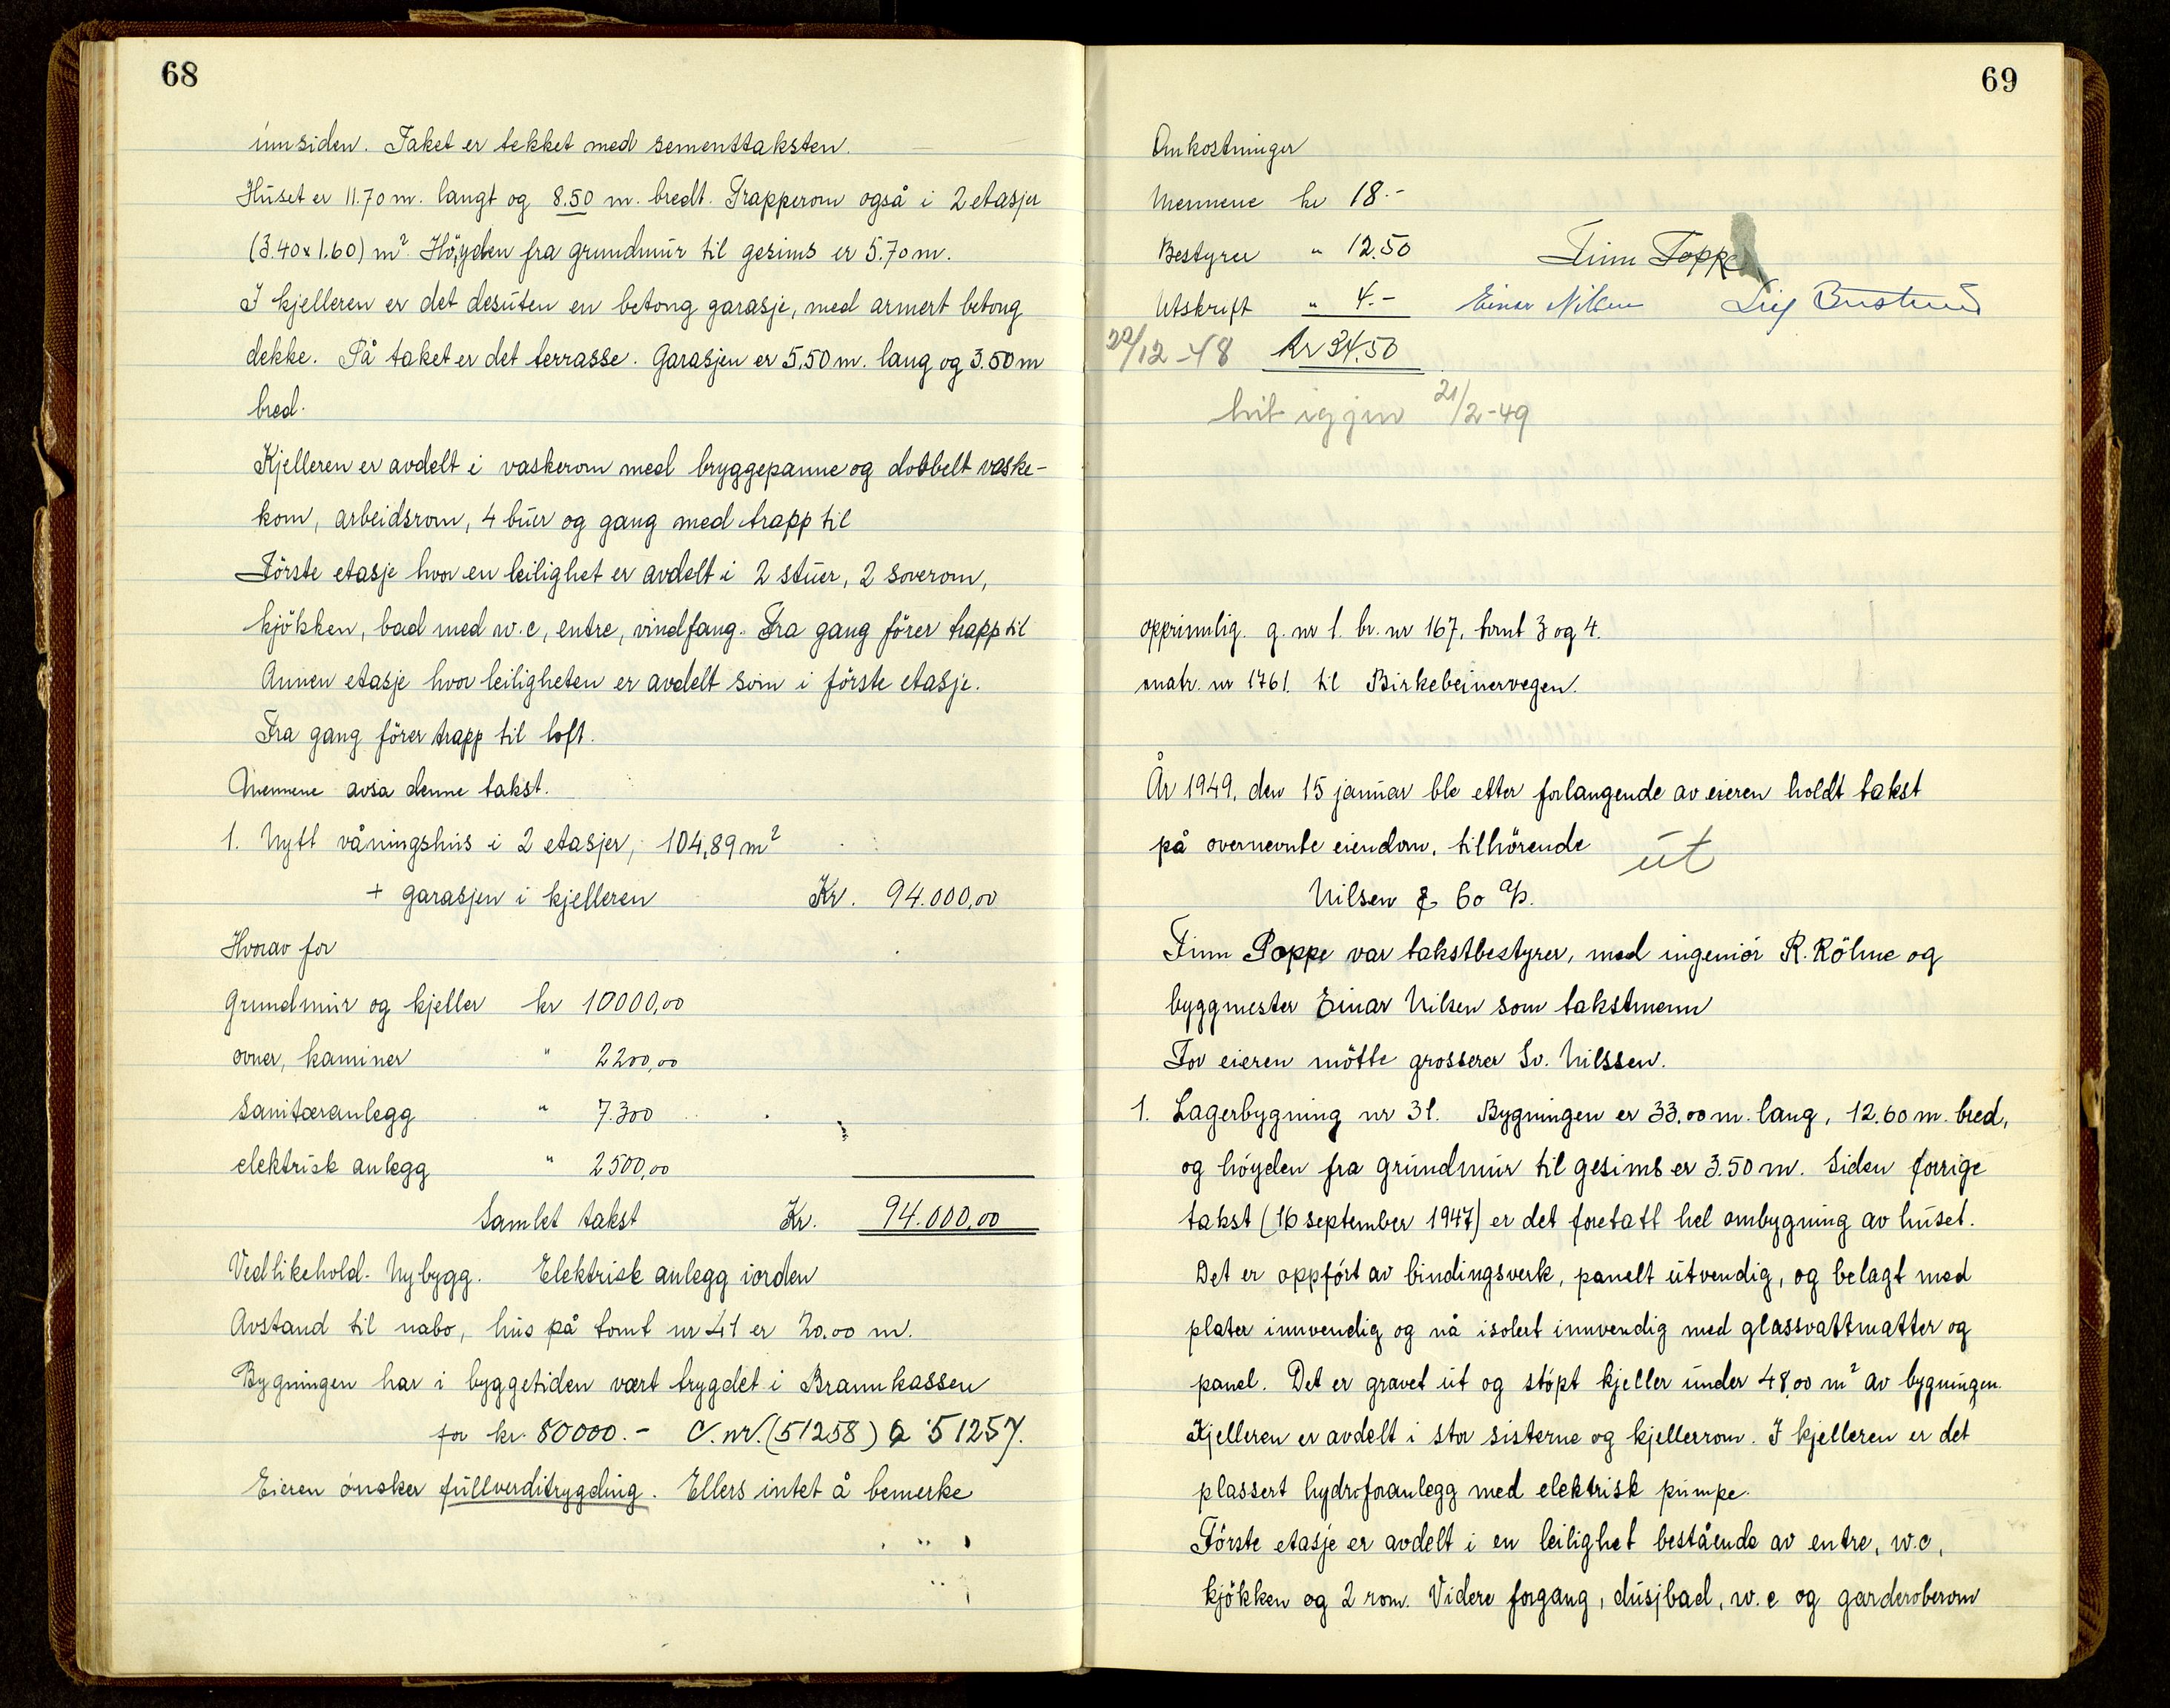 68
innsiden. Taket er tekket med sementtaksten.
Huset er 11.70 m. langt og 8.50 m. bredt. Trapperom også i 2 etasjer
(3.40 x 1.60) m² Höyden fra grundmur til gesims er 5.70 m.
I kjelleren er det desuten en betong garasje, med armert betong
dekke. På taket er det terrasse. Garasjen er 5,50 m. lang og 3.50 m
bred.
Kjelleren er avdelt i vaskerom med bryggepanne og dobbelt vaske-
kom, arbeidsrom, 4 buer og gang med trapp til
Förste etasje hvor en leilighet er avdelt i 2 stuer, 2 soverom,
kjökken, bad med w.c, entre, vindfang. Fra gang förer trapp til
Annen etasje hvor leiligheten er avdelt som i förste etasje.
Fra gang förer trapp til loft.
Mennene avsa denne takst.
1. Nytt våningshus i 2 etasjer, 104,89 m²
+ garasjen i kjelleren Kr. 94.000,00
Hvorav for
Grundmur og kjeller kr 10000,00
ovner, kaminer " 2200,00
Sanitæranlegg " 7.300
elektrisk anlegg " 2500,00
Samlet takst Kr. 94.000,00
Vedlikehold. Nybygg. Elektrisk anlegg iorden
Avstand til nabo, hus på tomt nr 41 er 20.00 m.
Bygningen har i byggetiden vært trygdet i Brannkassen
for kr. 80000.- C.nr. (51258) a 51257.
Eieren önsker fullverditrygding. Ellers intet å bemerke
69
Omkostninger
Mennene kr 18.-
Bestyrer " 12.50 Finn Poppe
Utskrift " 4.- Einar Nilsen Leif
22/12-48 Kr 34.50
hit iggjen 21/2-49
opprinnlig. g. nr 1. br. nr 167, tomt 3 og 4.
matr. nr 1761. til Birkebeinervegen.
År 1949, den 15 januar ble etter forlangende av eieren holdt takst
på overnevnte eiendom, tilhörende ut
Nilsen & Co A/S.
Finn Poppe var takstbestyrer, med ingeniör R. Röhne og
byggmester Einar Nilsen som takstmenn
For eieren mötte grosserer Sv. Nilssen.
1. Lagerbygning nr 31. Bygningen er 33,00 m. lang, 12.60 m. bred,
og höyden fra grundmur til gesims er 3.50 m. Siden forrige
takst (16 september 1947) er det foretatt hel ombygning av huset.
Det er oppfört av bindingsverk, panelt utvendig, og belagt med
plater innvendig og nå isolert innvendig med glassvattmatter og
panel. Det er gravet ut og stöpt kjeller under 48,00 m² av bygningen.
Kjelleren er avdelt i stor sisterne og kjellerrom. I kjelleren er det
plassert hydroforanlegg med elektrisk pumpe.
Förste etasje er avdelt i en leilighet bestående av entre, w.c,
kjökken og 2 rom. Videre forgang, dusjbad, w.c og garderoberom